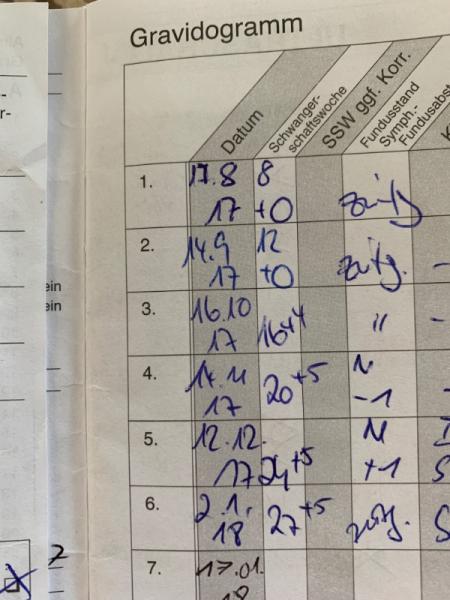 Gravidogramm
Datum
Schwanger-
schaftswoche
SSW ggf. Korr.
Fundusstand
Symph.-
Fundusabst
1. 17.8 8
17 +0 zeitg
2. 14.9 12
17 +0 zeitg. -
3. 16.10 16+4 " -
17
4. 14.11 20+5 N
17 -1
5. 12.12. 24+5 N
17 +1 S
6. 2.1. 27+5 zeitg. S
18
7. 17.01.
18
ein
ein
r-